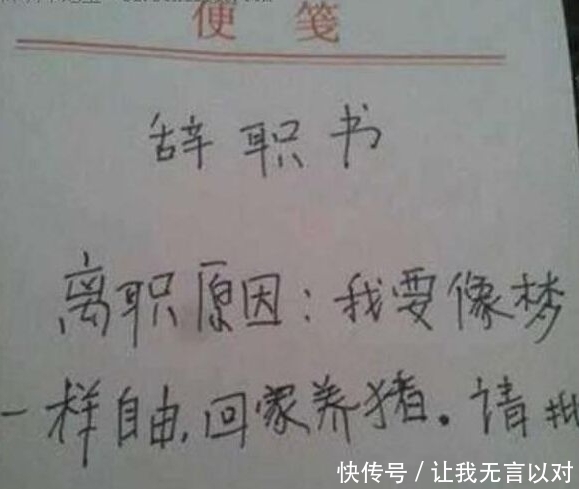 便笺
辞职书
离职原因：我要像梦
一样自由，回家养猪。请批
快传号／让我无言以对